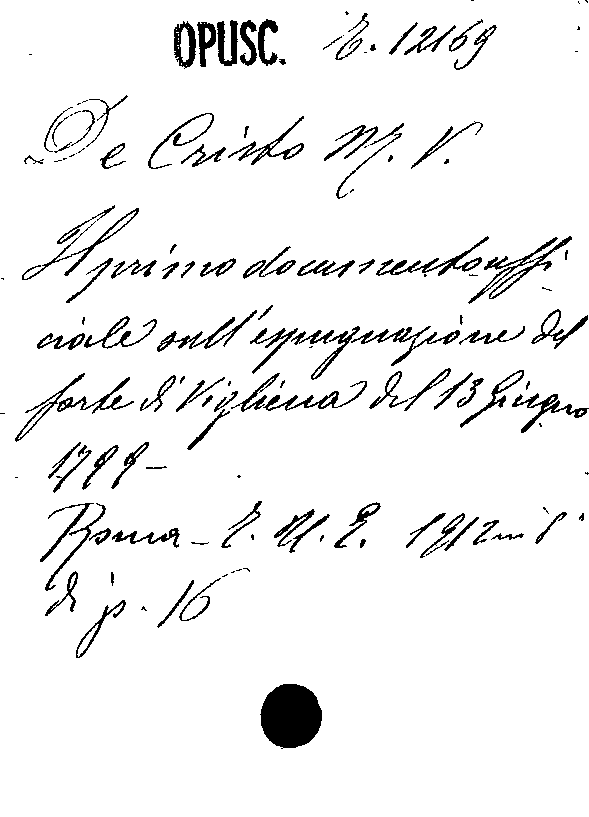 OPUSC. E. 12169
De Cristo M. V.
Il primo documento uffi
ciale sull'espugnazione del
forte di Vigliena del 13 Giugno
1799 -
Roma - E. U. E. 1912 in 8°
di p. 16